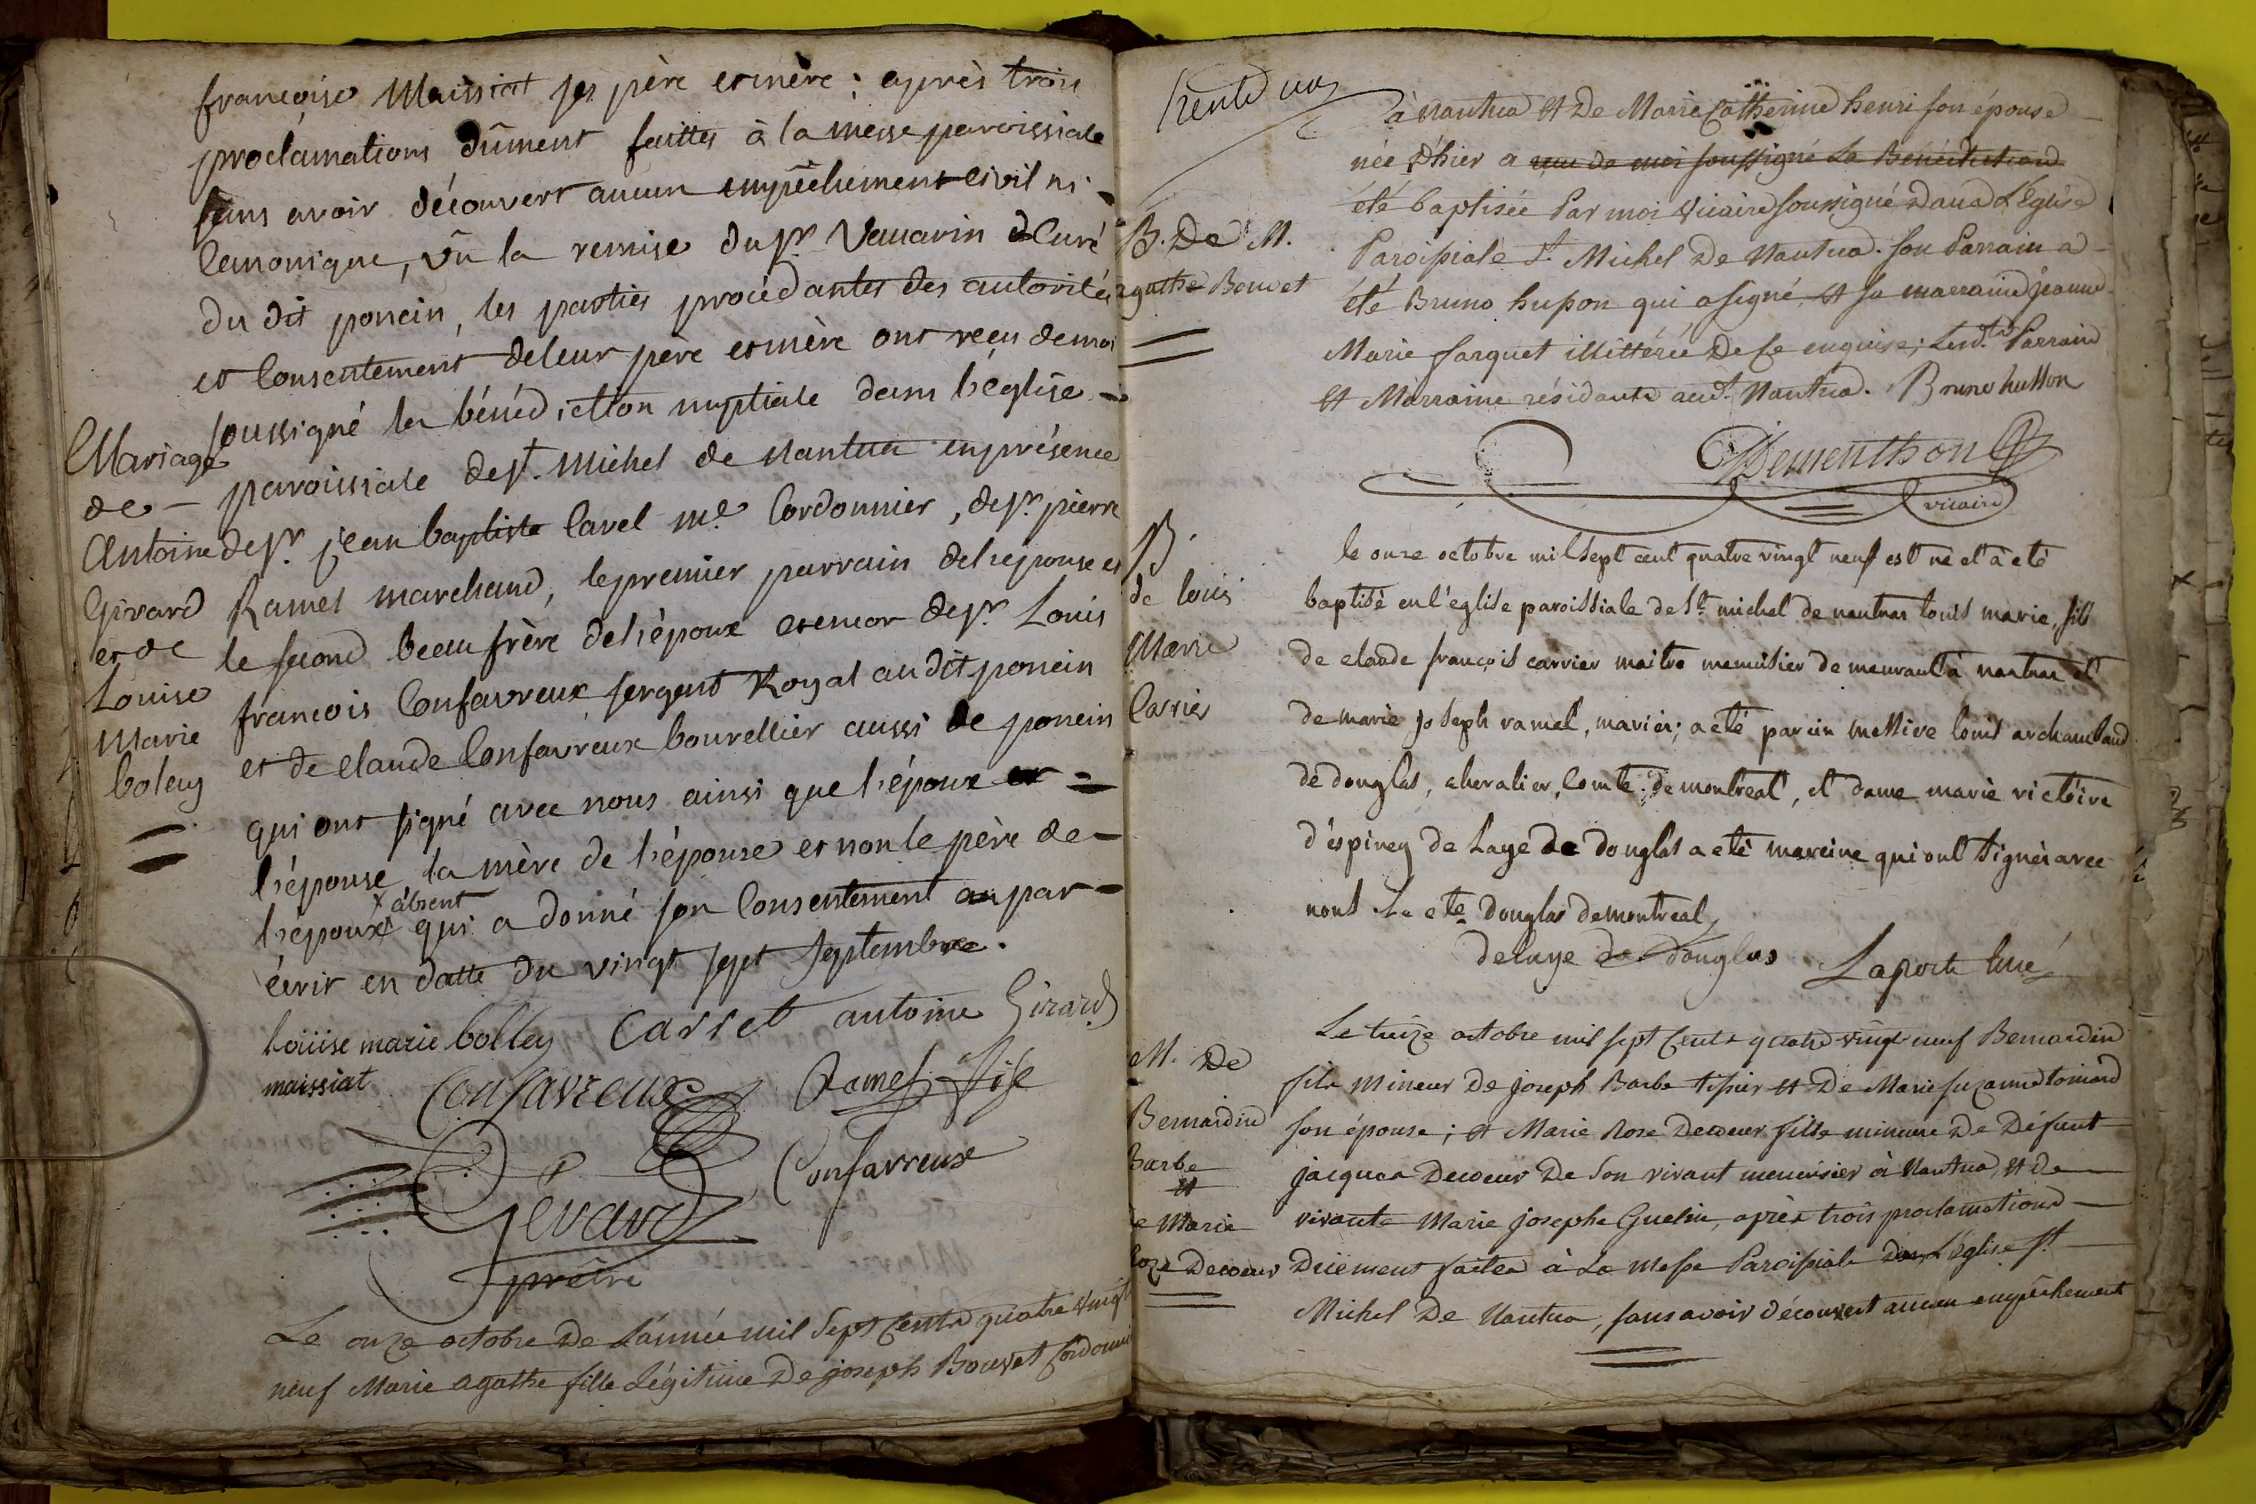 françoise Maissiat ses père et mère : après trois
proclamations dûment faittes à la messe paroissiale
sans avoir découvert aucun empêchement civil ni
Canonique, vû la remise du Sr. Curé
du dit poncin, les parties procédantes des autorités
et Consentement de leur père et mère ont reçu de moi
soussigné la bénédiction nuptiale dans l'église
paroissiale de St. Michel de Nantua en présence
de Sr. jean baptiste Carel me. Cordonnier, de Sr. pierre
Ramel marchand, le premier parrain de l'épouse et
le second beaufrère de l'époux et encor de Sr. Louis
françois Confavreux sergent Royal au dit poncin
et de claude Confavreux bourellier aussi de poncin
qui ont signé avec nous ainsi que l'époux et
l'épouse la mère de l'épouse et non le père de
l'époux x absent qui a donné son Consentement par
écrit en datte du vingt sept septembre.
Mariage
de
Antoine
Girard
et de
Louise
Marie
boley
Louise marie bolley Carret antoine Girard
maissiat Confavreux Ramel fils
Confavreux
Gévard
prêtre
Le onze octobre De L'année mil Sept Cents quatre Vingt
neuf Marie Agathe fille Légitime De joseph Bouvet Cordonnier
trente un
à Nantua et De Marie Catherine henri son épouse
née d'hier a reçu de moi soussigné La Bénédiction
été baptisée Par moi Vicaire soussigné Dans L'Eglise
Paroissiale St. Michel De Nantua. son Parrain a
été Bruno husson qui a signé, et sa marraine jeanne
Marie farquet illittérée De ce enquise; Lesd.ts Parrain
et Marraine résidants aud.t Nantua. Bruno husson
B. De M.
agathe Bouvet
Dementhon
vicaire
B.
de louis
Marie
Carrier
le onze octobre mil sept cent quatre vingt neuf est né et a eté
baptisé en l'eglise paroissiale de St. michel de nantua louis marie, fils
de claude françois carrier maitre menuisier de meurant à nantua et
de marie joseph ramel, mariés; a eté parein messire louis archambaud
de douglas, chevalier, Comte de montreal, et dame marie victoire
d'espiney de Laye de douglas a eté mareine qui ont signés avec
nous. Le cte douglas de montreal,
delaye de douglas Laporte Curé
M. De
Bernardin
Barbe
et
De Marie
Roze Decoeur
Le treize octobre mil sept Cents quatre vingt neuf Bernardin
fils Mineur De joseph Barbe tissier et De Marie Suzanne toinard
son épouse; et Marie Rose Decoeur fille mineure De Défunt
jacques Decoeur De Son vivant menuisier à Nantua, et de
vivante Marie josephe Guelin, après trois proclamations
Duement faites à La Messe Paroissiale De L'église St.
Michel De Nantua, sans avoir découvert aucun empêchement